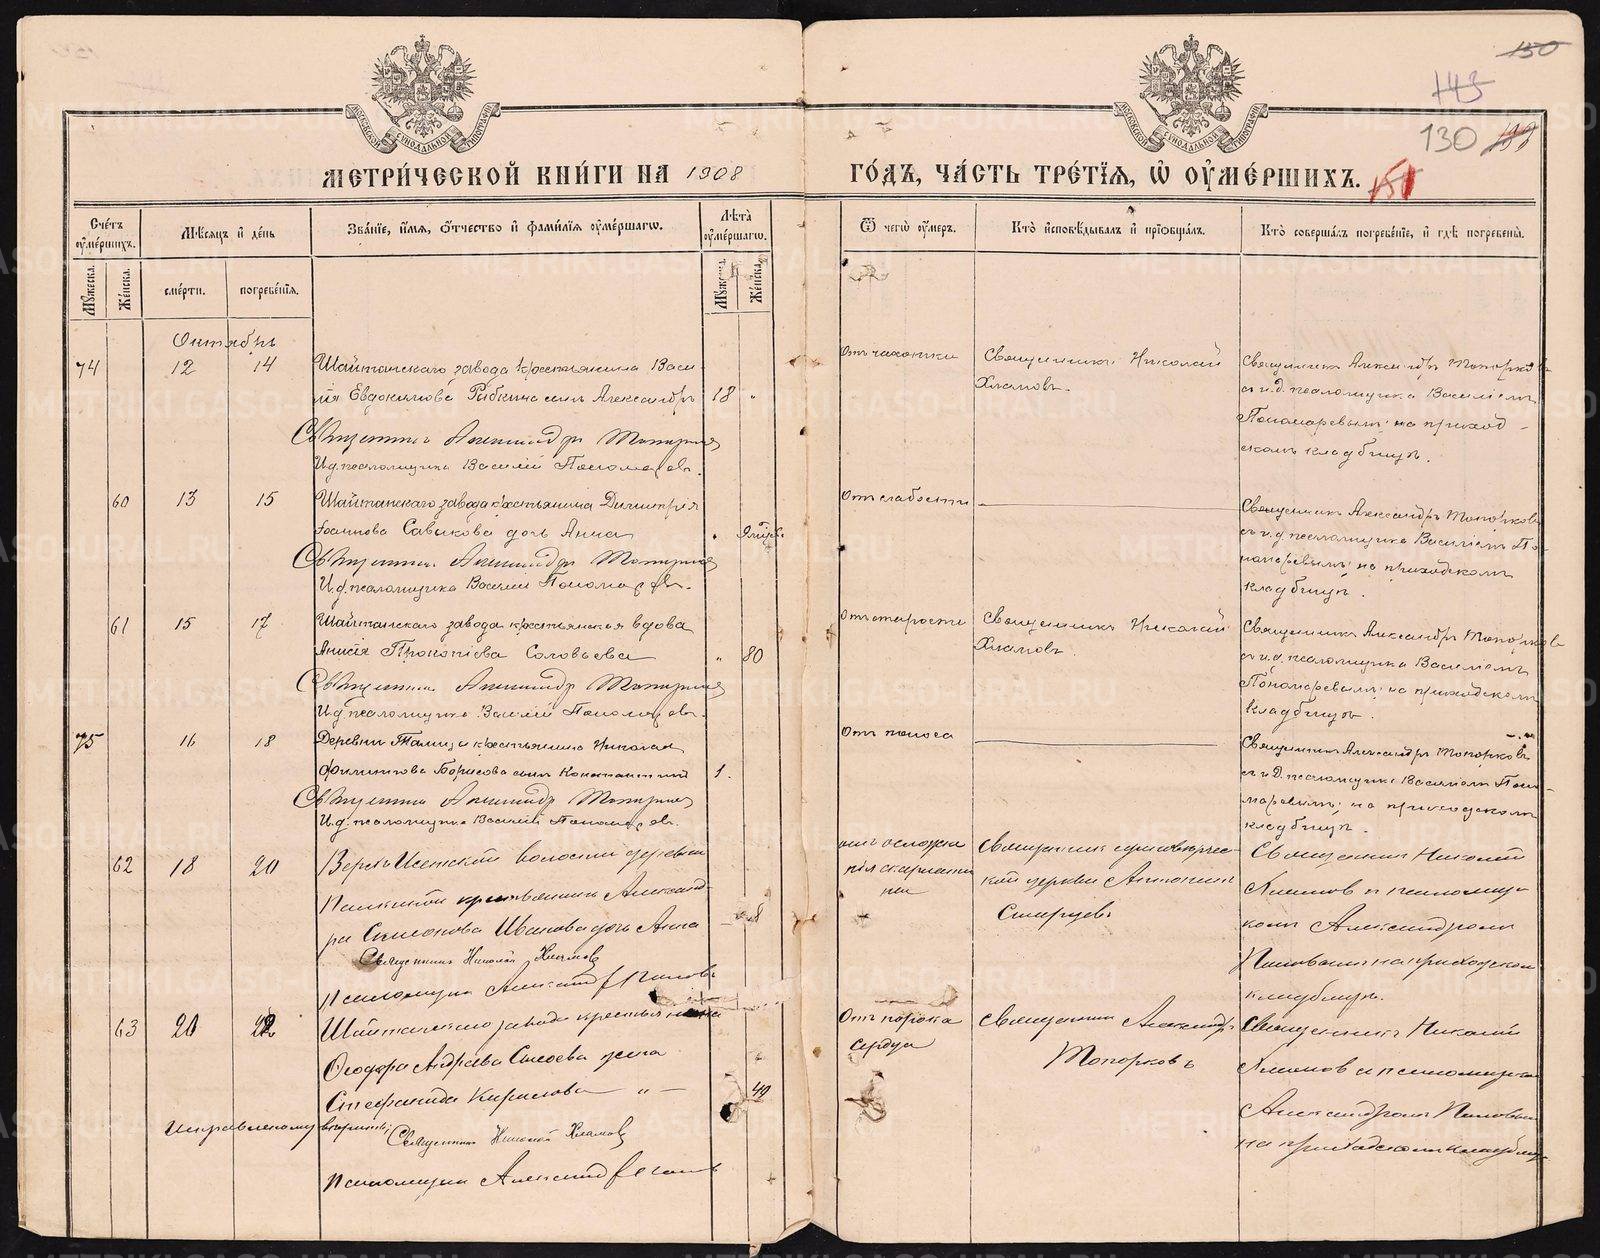 150
143
130 138
МОСКОВСКОЙ СѴНОДАЛЬНОЙ ТИПОГРАФІИ
МОСКОВСКОЙ СѴНОДАЛЬНОЙ ТИПОГРАФІИ
МЕТРИ́ЧЕСКОЙ КНИ́ГИ НА 1908 ГО́ДЪ, ЧА́СТЬ ТРЕ́ТЇѦ, Ѡ҆ ОУ҆МЕ́РШИХЪ.
151
Сче́тъ оу҆ме́ршихъ.
Мѣ́сѧцъ и҆ де́нь
Зва́нїе, и҆́мѧ, ѻ҆́тчество и҆ фами́лїѧ оу҆ме́ршагѡ.
Лѣ́та оу҆ме́ршагѡ.
Ѿ чегѡ̀ оу҆́меръ.
Кто̀ и҆сповѣ́дывалъ и҆ прїѡбща́лъ.
Кто̀ соверша́лъ погребе́нїе, и҆ гдѣ̀ погребены̀.
Мꙋ́жеска.
Же́нска.
сме́рти.
погребе́нїѧ.
Мꙋ́жеска.
Же́нска.
Октябрь
74 12 14
Шайтанскаго завода крестьянина Васи-
лія Евдокимова Рябкина сынъ Александръ 18 "
Священникъ Александръ Топорковъ
И.д. псаломщика Василій Пономаревъ.
Отъ чахотки
Священникъ Николай
Хламовъ.
Священникъ Александръ Топорковъ
съ и.д. псаломщика Василіемъ
Пономаревымъ на приход-
скомъ кладбищѣ.
60 13 15
Шайтанскаго завода крестьянина Димитрія
Іоаннова Савыкова дочь Анна
Священникъ Александръ Топорковъ
И.д. псаломщика Василій Пономаревъ.
Отъ слабости
Священникъ Александръ Топорковъ
съ и.д. псаломщика Василіемъ По-
номаревымъ на приходскомъ
кладбищѣ.
61 15 17
Шайтанскаго завода крестьянская вдова
Анисія Прокопіева Соловьева " 80
Священникъ Александръ Топорковъ
И.д. псаломщика Василій Пономаревъ.
Отъ старости
Священникъ Николай
Хламовъ.
Священникъ Александръ Топорковъ
съ и.д. псаломщика Василіемъ
Пономаревымъ на приходскомъ
кладбищѣ.
75 16 18
Деревни Талицы крестьянина Николая
Филиппова Борисова сынъ Константинъ 1.
Священникъ Александръ Топорковъ
И.д. псаломщика Василій Пономаревъ.
Отъ поноса
Священникъ Александръ Топорковъ
съ и.д. псаломщика Василіемъ Поно-
маревымъ на приходскомъ
кладбищѣ.
62 18 20
Верхъ Исетской волости деревни
крестьянина Александ-
ра Симонова Иванова дочь Анна — 8
Священникъ Николай Хламовъ
Псаломщикъ Александръ Поповъ
отъ осложне
нія скарлати
ны
Священник единовѣрчес-
кой церкви Антонинъ
Священникъ Николай
Хламовъ и псаломщи-
комъ Александромъ
Поповымъ на приходском
кладбищѣ.
63 20 22
Шайтанскаго завода крестьянина
Ѳеодора Андреева Сысоева жена
Стефанида Кирилова " — 49
Исправленому вѣрить;
Священникъ Николай Хламовъ
Псаломщикъ Александръ Поповъ
Отъ порока
сердца
Священникъ Александръ
Топорковъ
Священникъ Николай
Хламовъ и псаломщикомъ
Александромъ Поповымъ
на приходском кладбищѣ
METRIKI.GASO-URAL.RU